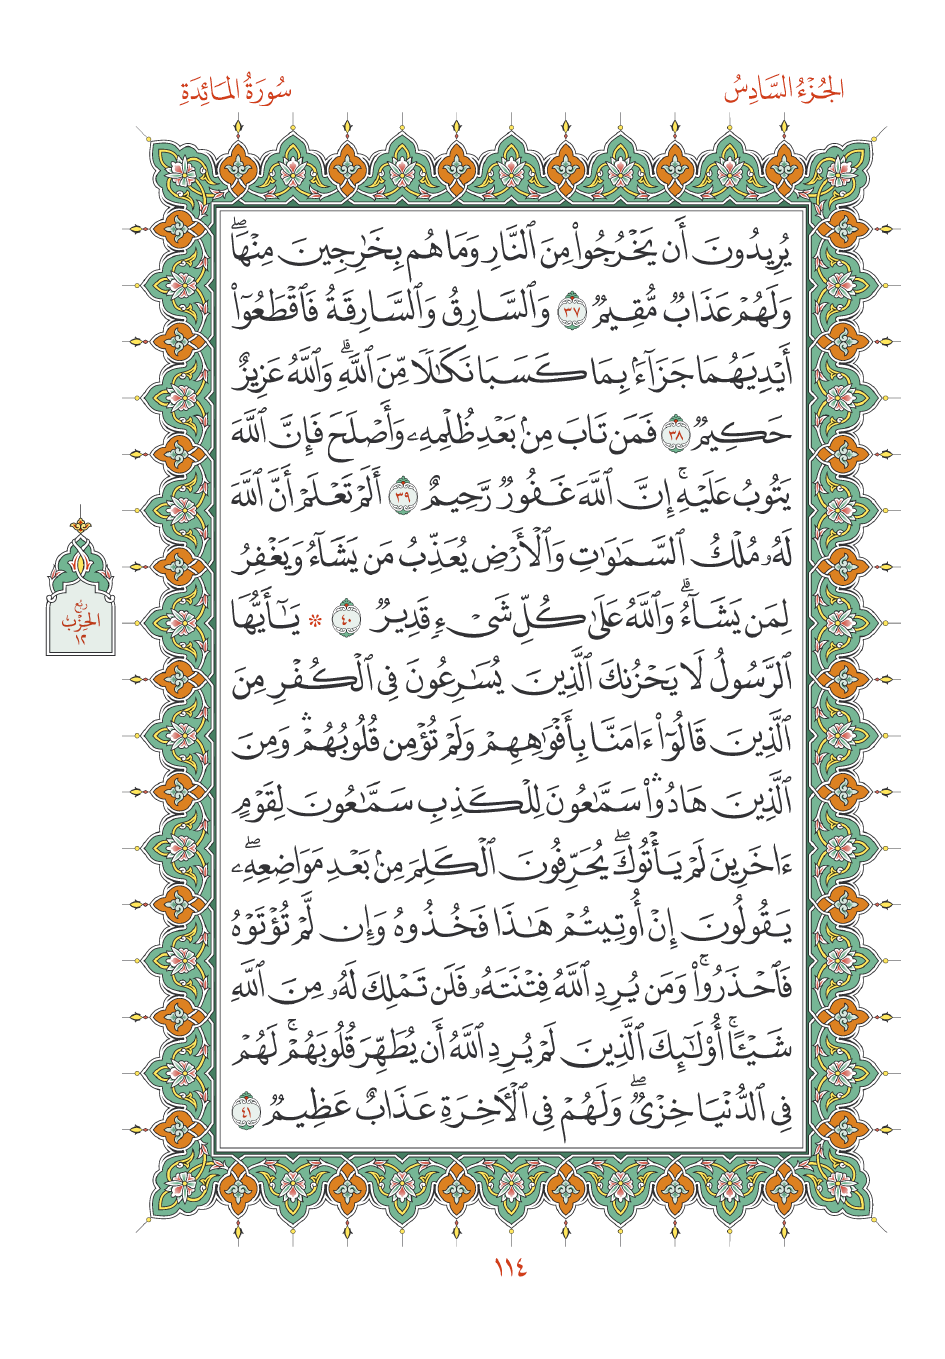 الجُزْءُ السَّادِسُ
سُورَةُ المَائِدَةِ
يُرِيدُونَ أَن يَخْرُجُوا۟ مِنَ ٱلنَّارِ وَمَا هُم بِخَـٰرِجِينَ مِنْهَا ۖ
وَلَهُمْ عَذَابٌ مُّقِيمٌ ٣٧ وَٱلسَّارِقُ وَٱلسَّارِقَةُ فَٱقْطَعُوٓا۟
أَيْدِيَهُمَا جَزَآءًۢ بِمَا كَسَبَا نَكَـٰلًا مِّنَ ٱللَّهِ ۗ وَٱللَّهُ عَزِيزٌ
حَكِيمٌ ٣٨ فَمَن تَابَ مِنۢ بَعْدِ ظُلْمِهِۦ وَأَصْلَحَ فَإِنَّ ٱللَّهَ
يَتُوبُ عَلَيْهِ ۚ إِنَّ ٱللَّهَ غَفُورٌ رَّحِيمٌ ٣٩ أَلَمْ تَعْلَمْ أَنَّ ٱللَّهَ
لَهُۥ مُلْكُ ٱلسَّمَـٰوَٰتِ وَٱلْأَرْضِ يُعَذِّبُ مَن يَشَآءُ وَيَغْفِرُ
لِمَن يَشَآءُ ۗ وَٱللَّهُ عَلَىٰ كُلِّ شَىْءٍ قَدِيرٌ ٤٠ * يَـٰٓأَيُّهَا
ٱلرَّسُولُ لَا يَحْزُنكَ ٱلَّذِينَ يُسَـٰرِعُونَ فِى ٱلْكُفْرِ مِنَ
ٱلَّذِينَ قَالُوٓا۟ ءَامَنَّا بِأَفْوَٰهِهِمْ وَلَمْ تُؤْمِن قُلُوبُهُمْ ۛ وَمِنَ
ٱلَّذِينَ هَادُوا۟ ۛ سَمَّـٰعُونَ لِلْكَذِبِ سَمَّـٰعُونَ لِقَوْمٍ
ءَاخَرِينَ لَمْ يَأْتُوكَ ۖ يُحَرِّفُونَ ٱلْكَلِمَ مِنۢ بَعْدِ مَوَاضِعِهِۦ ۖ
يَقُولُونَ إِنْ أُوتِيتُمْ هَـٰذَا فَخُذُوهُ وَإِن لَّمْ تُؤْتَوْهُ
فَٱحْذَرُوا۟ ۚ وَمَن يُرِدِ ٱللَّهُ فِتْنَتَهُۥ فَلَن تَمْلِكَ لَهُۥ مِنَ ٱللَّهِ
شَيْـًٔا ۚ أُو۟لَـٰٓئِكَ ٱلَّذِينَ لَمْ يُرِدِ ٱللَّهُ أَن يُطَهِّرَ قُلُوبَهُمْ ۚ لَهُمْ
فِى ٱلدُّنْيَا خِزْىٌ ۖ وَلَهُمْ فِى ٱلْـَٔاخِرَةِ عَذَابٌ عَظِيمٌ ٤١
ربع
الحِزْب
١٢
١١٤